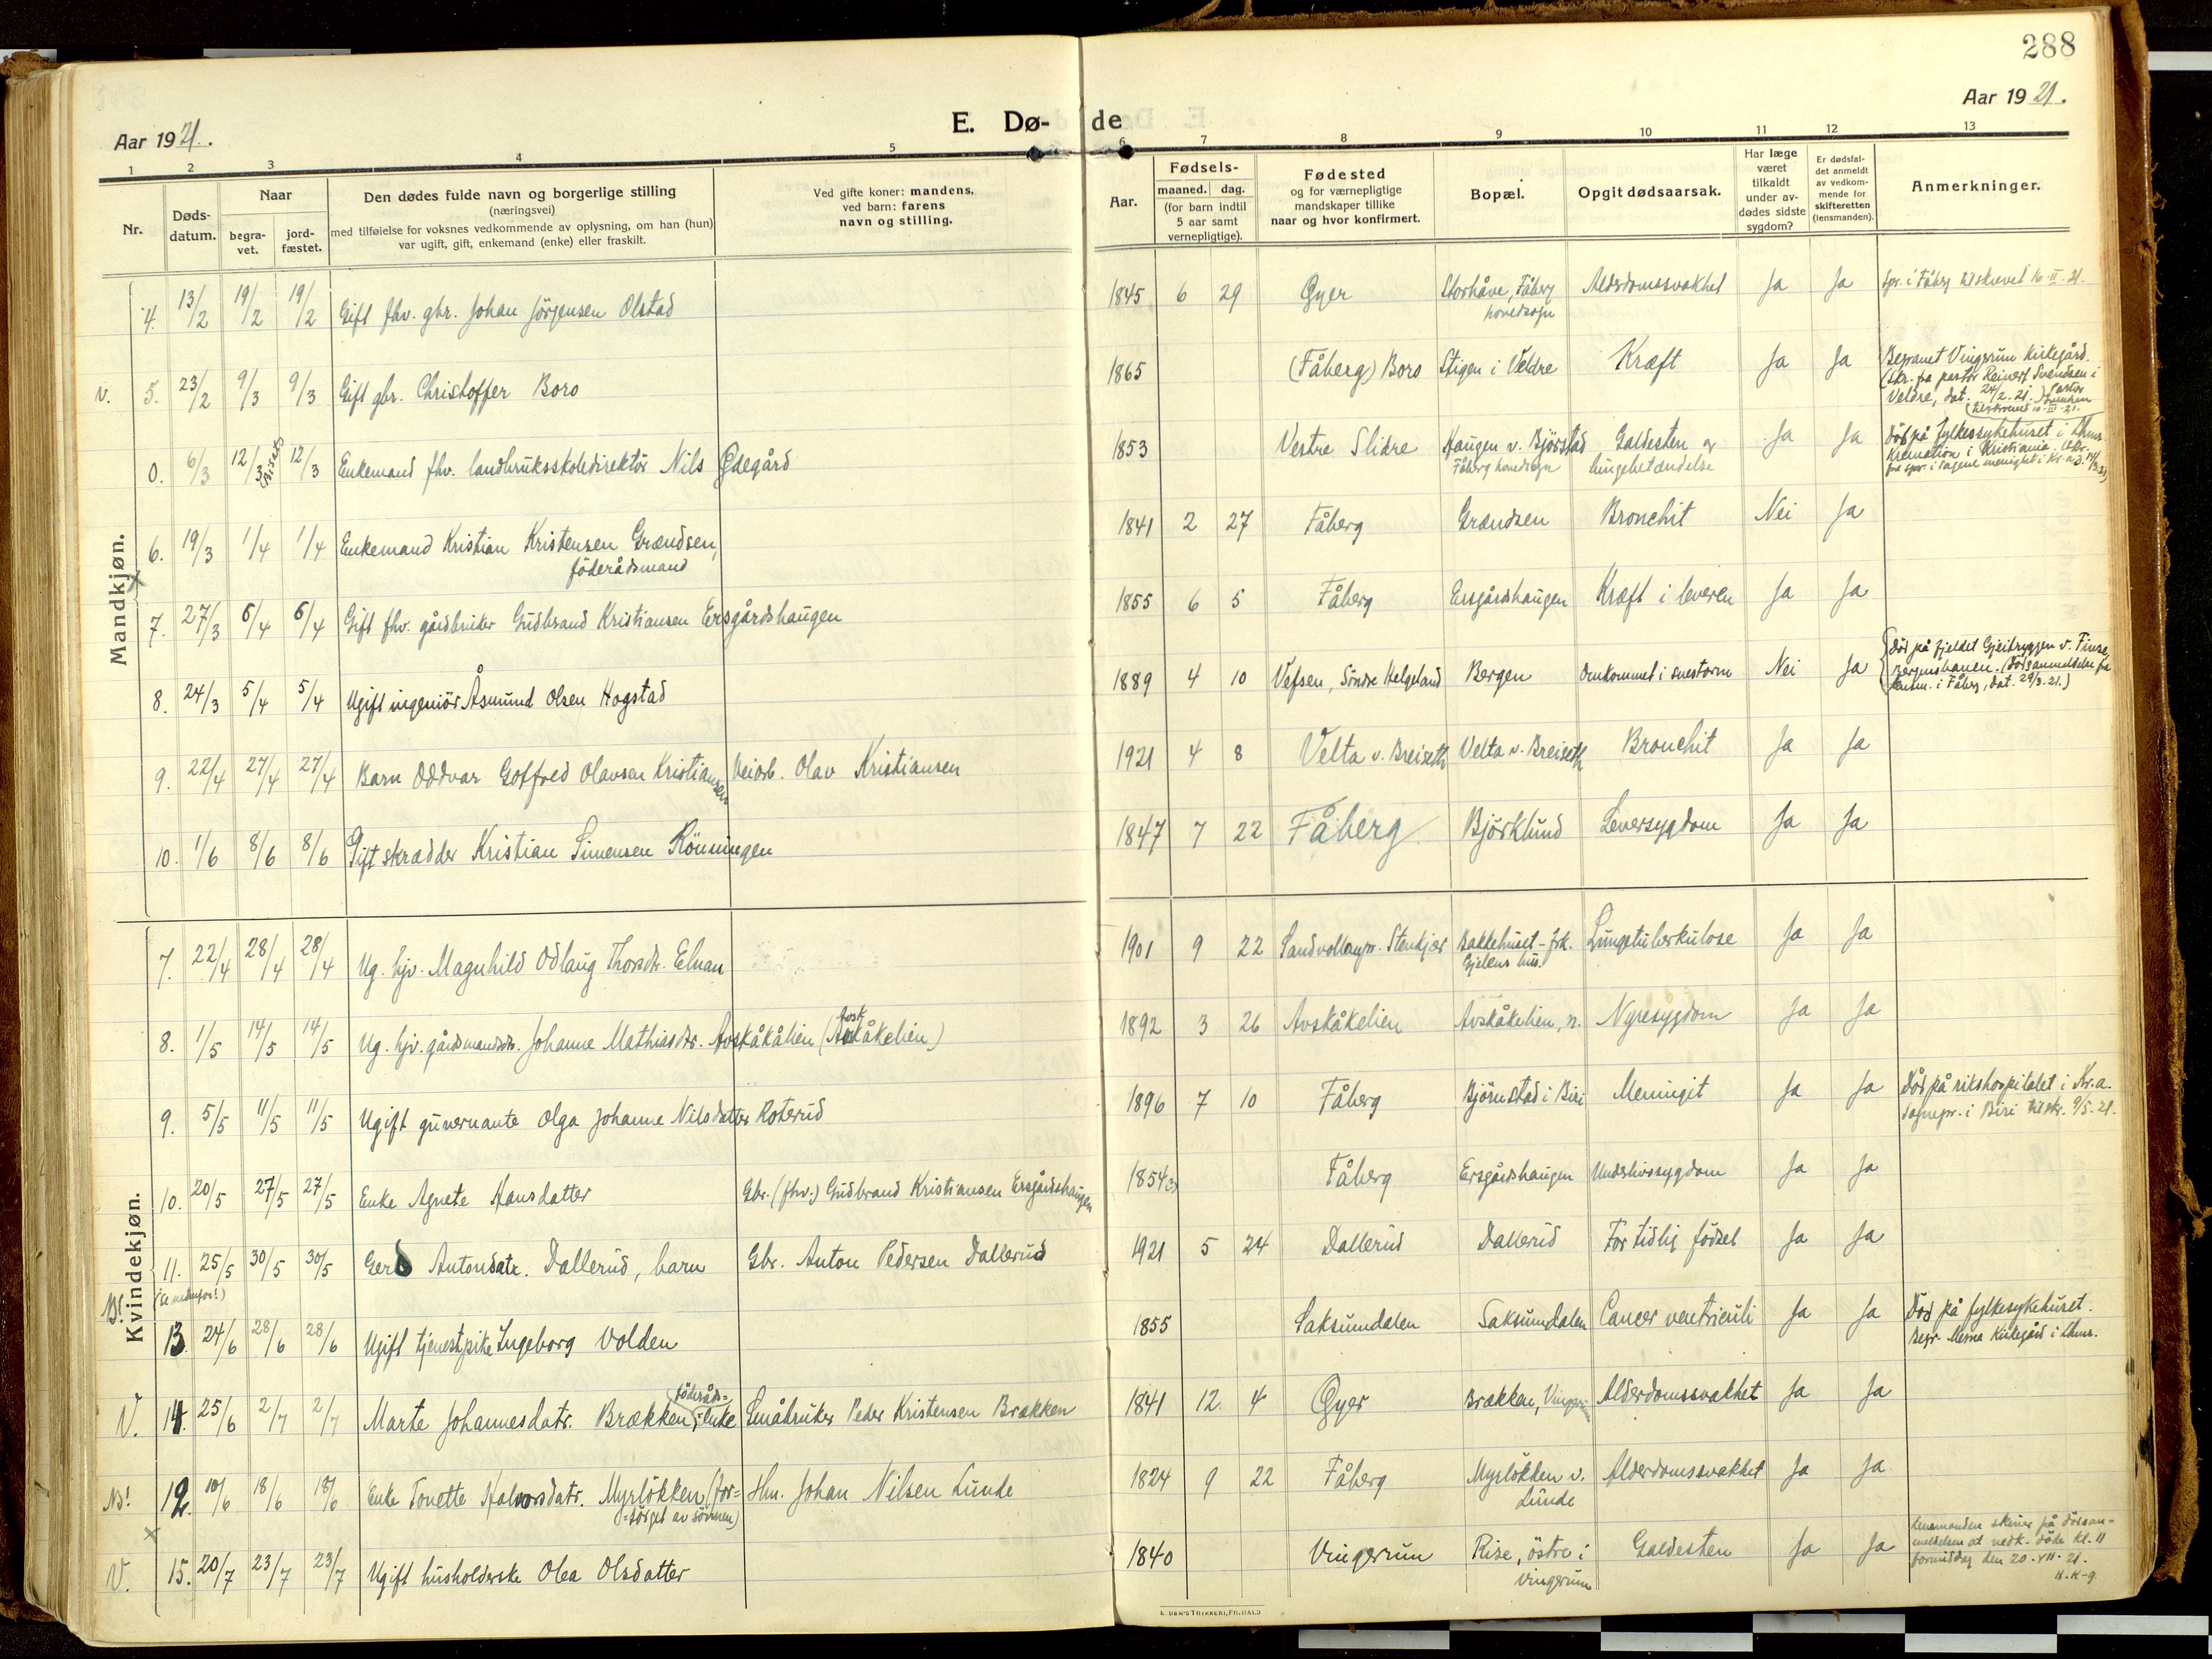 288
Aar 1921.
E. Dø-
de
Aar 1921.
1 2 3 4 5 6 7 8 9 10 11 12 13
Nr.
Døds-
datum.
Naar
begra-
vet.
jord-
fæstet.
Den dødes fulde navn og borgerlige stilling
(næringsvei)
med tilføielse for voksnes vedkommende av oplysning, om han (hun)
var ugift, gift, enkemand (enke) eller fraskilt.
Ved gifte koner: mandens,
ved barn: farens
navn og stilling.
Aar.
Fødsels-
maaned. dag.
(for barn indtil
5 aar samt
vernepligtige).
Fødested
og for værnepligtige
mandskaper tillike
naar og hvor konfirmert.
Bopæl.
Opgit dødsaarsak.
Har læge
været
tilkaldt
under av-
dødes sidste
sygdom?
Er dødsfal-
det anmeldt
av vedkom-
mende for
skifteretten
(lensmanden).
Anmerkninger.
Mandkjøn.
4. 13/2 19/2 19/2 Gift fhv. gbr. Johan Jörgensen Olstad 1845 6 29 Öyer Storhåve, Fåberg Alderdomssvakhet Ja Ja Spr. i Fåberg tilskrevet 16-II-21.
hovedsogn
V. 5. 23/2 9/3 9/3 Gift gbr. Christoffer Boro 1865 (Fåberg) Boro Stigen i Veldre Kræft Ja Ja Begravet Vingrum kirkegård.
(Skr. fra pastor Reinert Svendsen i
Veldre, dat. 24/2-21.) Pastor
tilskrevet 10-III-21.
0. 6/3 12/3 (bisat) 12/3 Enkemand fhv. landbruksskoledirektör Nils Ödegård 1853 Vestre Slidre Haugen v. Björstad Galdesten og Ja Ja död på fylkessykehuset i Lhmr.
Fåberg hovedsogn lungebetændelse Kremation i Kristiania.
6. 19/3 1/4 1/4 Enkemand Kristian Kristensen Grændsen, 1841 2 27 Fåberg Grændsen Bronchit Nei Ja
föderådsmand
7. 27/3 6/4 6/4 Gift fhv. gårdbruker Gudbrand Kristiansen Ersgårdshaugen 1855 6 5 Fåberg Ersgårdshaugen Kræft i leveren Ja Ja
8. 24/3 5/4 5/4 Ugift ingeniör Åsmund Olsen Hogstad 1889 4 10 Vefsen, Söndre Helgeland Bergen Omkommet i snestorm Nei Ja död på fjeldet Gjeitryggen v. Finse,
Bergensbanen. (Dödsanmeldelse fra
lensm. i Fåberg, dat. 29/3.21.)
9. 22/4 27/4 27/4 Barn Oddvar Gotfred Olavsen Kristiansen Veiarb. Olav Kristiansen 1921 4 8 Velta v. Breiseth Velta v. Breiseth Bronchit Ja Ja
10. 1/6 8/6 8/6 Gift skrædder Kristian Simensen Rönningen 1847 7 22 Fåberg Björklund Leversygdom Ja Ja
Kvindekjøn.
7. 22/4 28/4 28/4 Ug. hjv. Magnhild Odlaug Thorsdtr. Elnan 1901 9 22 Sandvollan pr. Stenkjær Bakkehuset - frk. Lungetuberkulose Ja Ja
Gjelens hus.
8. 1/5 14/5 14/5 Ug. hjv. gårdmandsdtr. Johanne Mathiasdtr. Avskåkålien (Avskåkelien) 1892 3 26 Avskåkelien Avskåkelien, n. Nyresygdom Ja Ja
9. 5/5 11/5 11/5 Ugift guvernante Olga Johanne Nilsdatter Roterud 1896 7 10 Fåberg Björnstad i Biri Meningit Ja Ja Död på rikshospitalet i Kr.a.
Sognepr. i Biri tilskr. 9/5.21.
10. 20/5 27/5 27/5 Enke Agnete Hansdatter Gbr. (fhv.) Gudbrand Kristiansen Ersgårdshaugen 1854 Fåberg Ersgårdshaugen Underlivssygdom Ja Ja
11. 25/5 30/5 30/5 Gerd Antonsdatr. Dallerud, barn Gbr. Anton Pedersen Dallerud 1921 5 24 Dallerud Dallerud For tidlig födsel Ja Ja
NB! (se nedenfor!)
13. 24/6 28/6 28/6 Ugift tjenestpike Ingeborg Volden 1855 Saksumdalen Saksumdalen Cancer ventriculi Ja Ja Död på fylkessykehuset.
Begr. Mesna kirkegård i Lhmr.
V. 14. 25/6 2/7 2/7 Marte Johannesdatr. Brækken, föderåds-enke Småbruker Peder Kristensen Brækken 1841 12 4 Öyer Brækken, Vingrom Alderdomssvakhet Ja Ja
NB! 12. 10/6 18/6 18/6 Enke Tonette Halvorsdatr. Myrlökken (for- Hm. Johan Nilsen Lunde 1824 9 22 Fåberg Myrlökken v. Alderdomssvakhet Ja Ja
=sörget av sönnen) Lunde
V. 15. 20/7 23/7 23/7 Ugift husholderske Olea Olsdatter 1840 Vingerum Rise, östre i Galdesten Ja Ja Lensmanden skriver på dödsan-
Vingerum meldelsen at vedk. döde kl. 11
formiddag den 20-VII-21.
K-g.
E. SEM'S TRYKKERI, FR.HALD